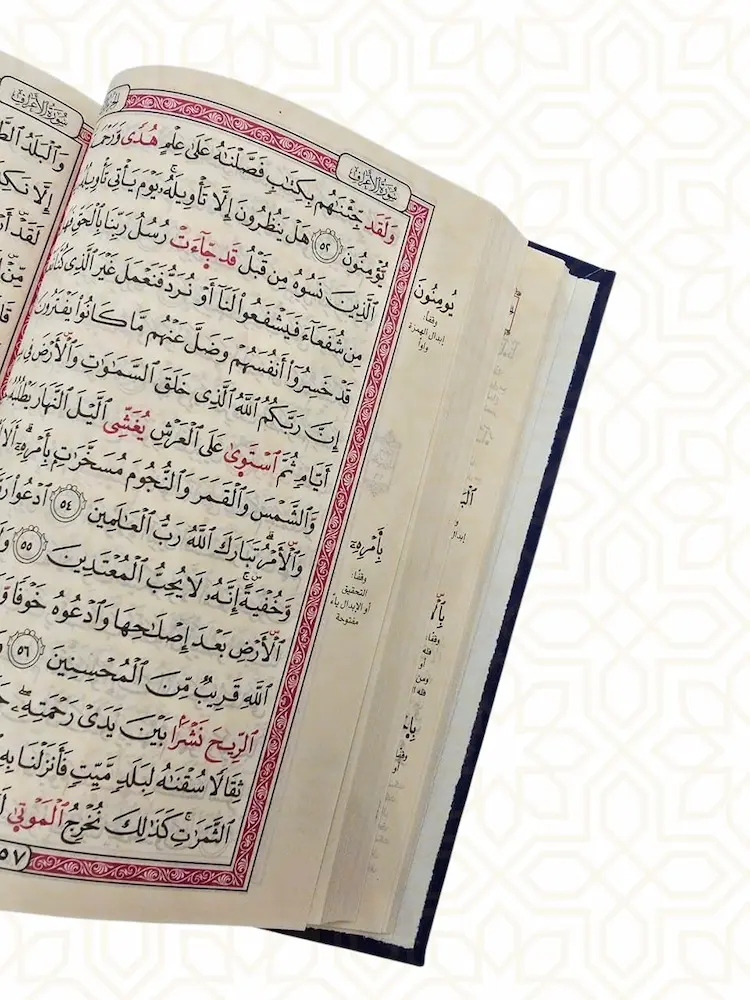 سُورَةُ الْأَعْرَافِ
وَٱلْبَلَدُ
إِلَّا نَكِدًا
لَقَدْ
سُورَةُ الْأَعْرَافِ
وَلَقَدْ جِئْنَٰهُم بِكِتَٰبٍ فَصَّلْنَٰهُ عَلَىٰ عِلْمٍ هُدًى
يُؤْمِنُونَ ٥٢ هَلْ يَنظُرُونَ إِلَّا تَأْوِيلَهُۥ يَوْمَ يَأْتِي تَأْوِيلُهُ
ٱلَّذِينَ نَسُوهُ مِن قَبْلُ قَد جَّآءَتْ رُسُلُ رَبِّنَا بِٱلْحَقِّ
مِن شُفَعَآءَ فَيَشْفَعُوا۟ لَنَآ أَوْ نُرَدُّ فَنَعْمَلَ غَيْرَ ٱلَّذِي كُنَّا
قَدْ خَسِرُوٓا۟ أَنفُسَهُمْ وَضَلَّ عَنْهُم مَّا كَانُوا۟ يَفْتَرُونَ
إِنَّ رَبَّكُمُ ٱللَّهُ ٱلَّذِي خَلَقَ ٱلسَّمَٰوَٰتِ وَٱلْأَرْضَ فِي
أَيَّامٍ ثُمَّ ٱسْتَوَىٰ عَلَى ٱلْعَرْشِ يُغَشِّي ٱلَّيْلَ ٱلنَّهَارَ يَطْلُبُهُ
وَٱلشَّمْسَ وَٱلْقَمَرَ وَٱلنُّجُومَ مُسَخَّرَٰتٍ بِأَمْرِهِۦٓ أَلَا
وَٱلْأَمْرُ تَبَارَكَ ٱللَّهُ رَبُّ ٱلْعَٰلَمِينَ ٥٤ ٱدْعُوا۟
وَخُفْيَةً إِنَّهُۥ لَا يُحِبُّ ٱلْمُعْتَدِينَ ٥٥
ٱلْأَرْضِ بَعْدَ إِصْلَٰحِهَا وَٱدْعُوهُ خَوْفًا
ٱللَّهِ قَرِيبٌ مِّنَ ٱلْمُحْسِنِينَ ٥٦
ٱلرِّيحَ نَشْرًا بَيْنَ يَدَيْ رَحْمَتِهِۦ
ثِقَالًا سُقْنَٰهُ لِبَلَدٍ مَّيِّتٍ فَأَنزَلْنَا بِهِ
ٱلثَّمَرَٰتِ كَذَٰلِكَ نُخْرِجُ ٱلْمَوْتَىٰ
٥٧
يُومِنُونَ
وقفًا:
إبدال الهمزة
واوا
بِأَمْرِهِۦ
وقفًا:
التحقيق
أو الإبدال ياءً
مفتوحة